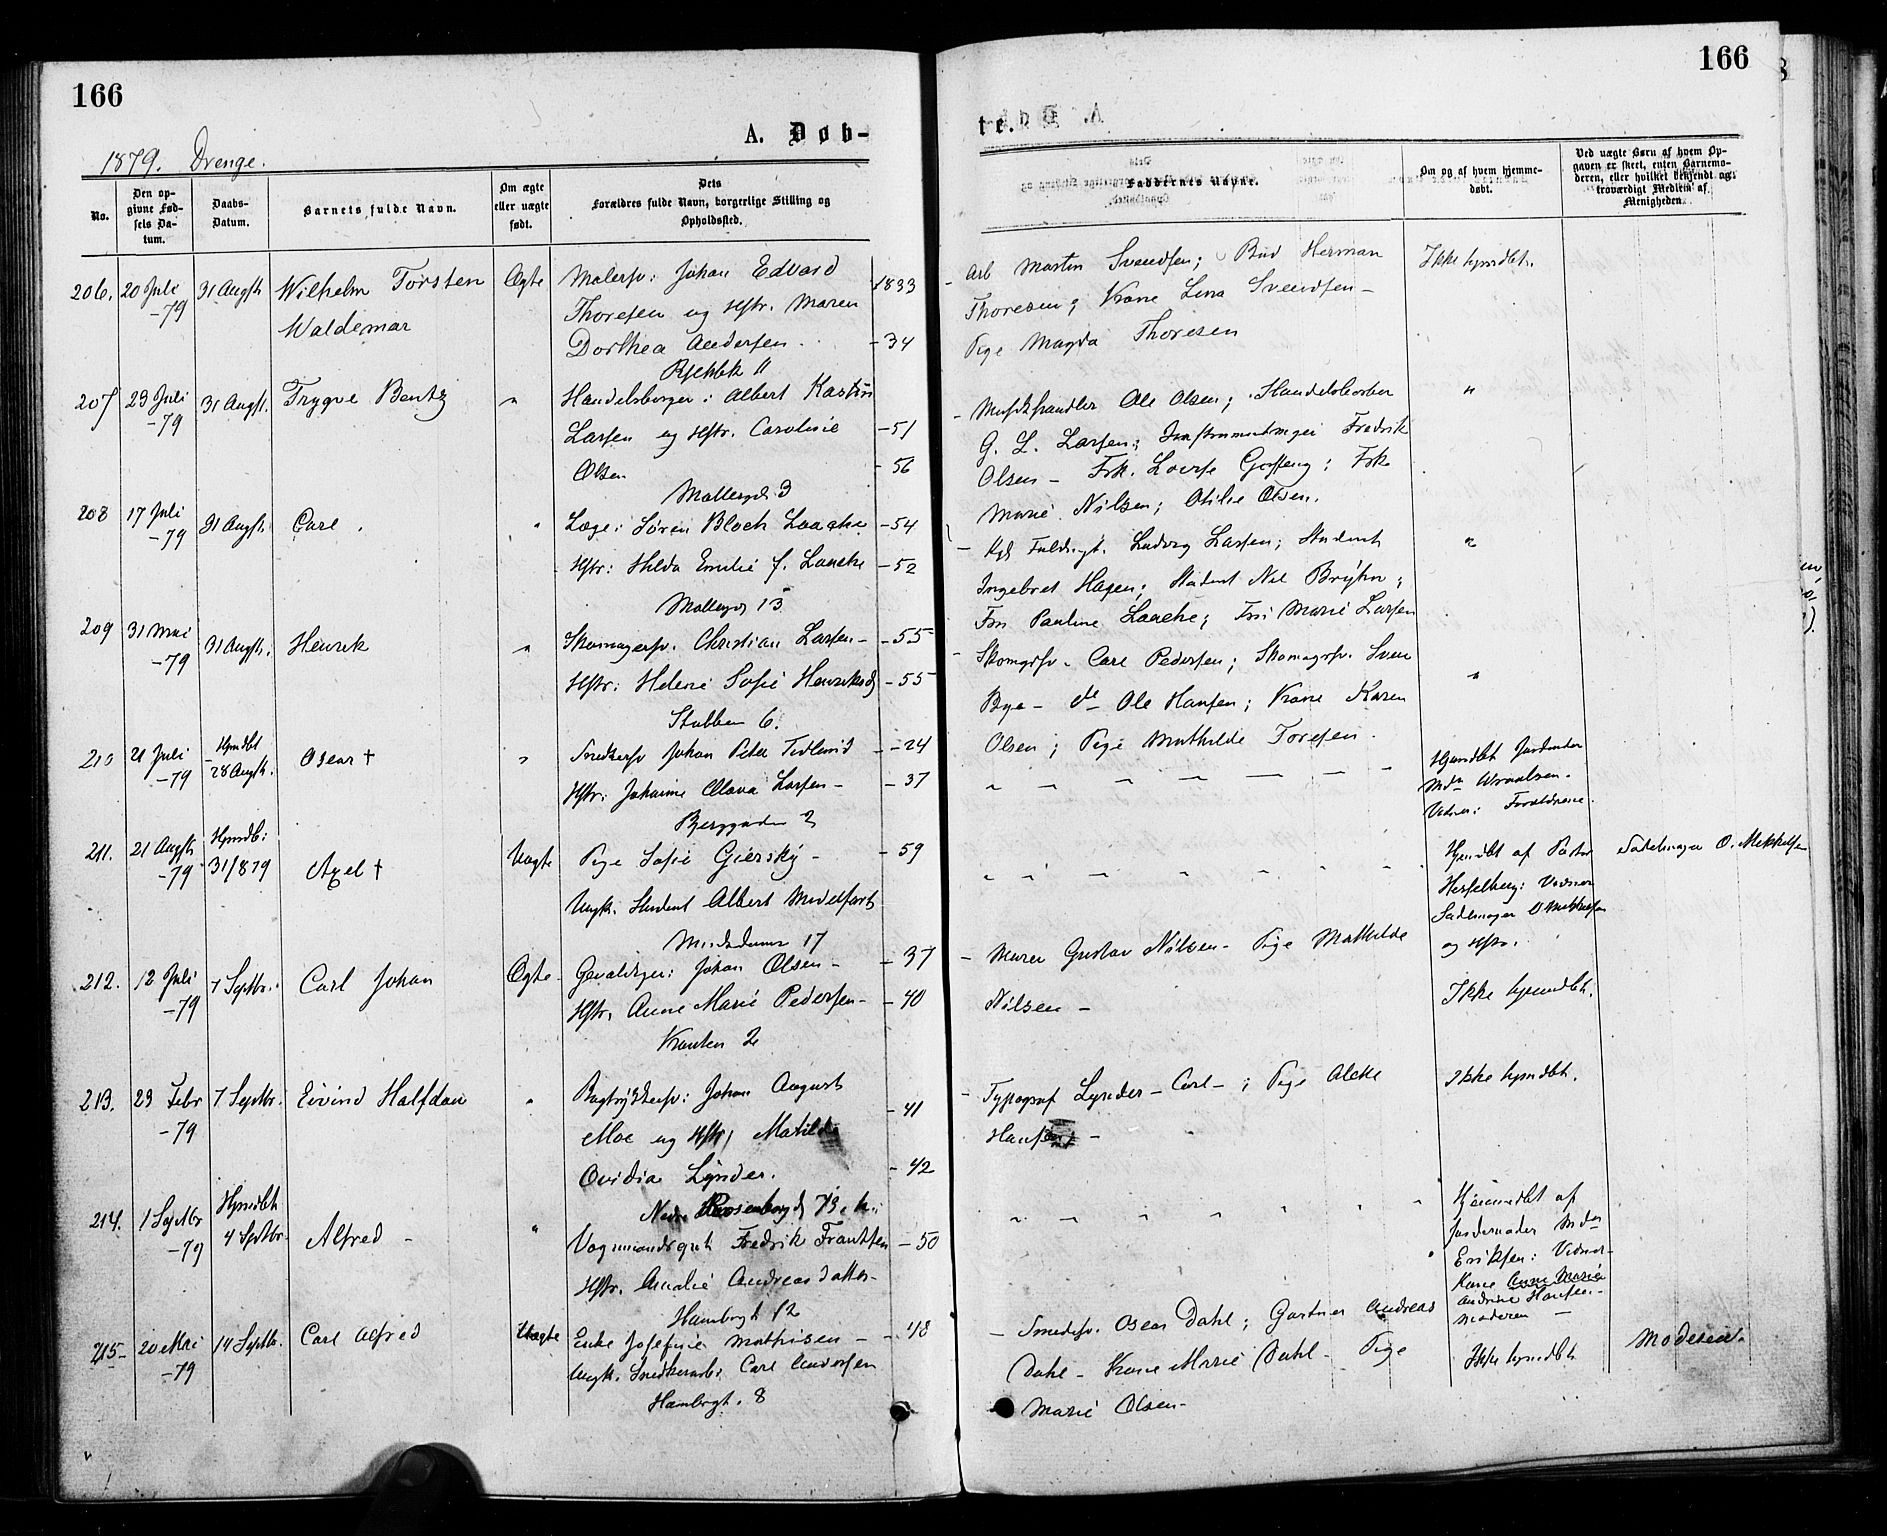 166
166
A. Døb-
te.
1879. Drenge.
No.
Den op-
givne Fød-
sels Da-
tum.
Daabs-
Datum.
Barnets fulde Navn.
Om ægte
eller uægte
født.
Dets
Forældres fulde Navn, borgerlige Stilling og
Opholdssted.
Faddernes Navne.
Om og af hvem hjemme-
døbt.
Ved uægte Børn af hvem Op-
gaven er skeet, enten Barnemo-
deren, eller hvilket bekjendt og
troværdigt Medlem af
Menigheden.
206. 20 Juli 31 Augst. Wilhelm Torsten Ægte Malersv: Johan Edvard 1833
-79 Waldemar Thoresen og Hstr. Maren
Dorthea Andersen -34
11
- Arb Martin Svendsen; Bud Herman Ikke hjmdbt.
Thoresen; Kone Lina Svendsen -
Pige Magda Thoresen
207 23 Juli 31 Augst. Trygve Bentz " Handelsborger: Albert
-79 Larsen og Hstr. Caroline -51
Olsen -56
Møllergd. 3
- Musikhandler Ole Olsen; "
G. L. Larsen; Fredrik
Olsen - Frk. Lovise ; Frk
Marie Nilsen; Otilie Olsen.
208 17 Juli 31 Augst. Carl " Læge: Søren Bloch Laache -54
-79 Hstr: Hilda Emilie f. Laache -52
Møllergd 15
- Ludvig Larsen; Student "
Ingebret Hagen; Student Nil Bryhn;
Frk Pauline Laache; Frk Marie Larsen
209 31 Mai 31 Augst. Henrik " Skomagersv. Christian Larsen - -55
-79 Hstr: Helene Sofie Henriksd -55
Stubben 6.
- Skomgrsv. Carl Pedersen; Skomagrsv. Sven
Bye - do Ole Hansen; Kone Karen "
Olsen; Pige Mathilde Toresen.
210 21 Juli Hjmdbt Oscar † " Snedkersv Johan Peter -24
-79 28 Augst. Hstr: Johanne Olava Larsen - -37
Berggaden 2
Hjemdbt Jordmoder
Vidner: Forældrene.
211. 21 Augst Hjmdb: Axel † Uægte Pige Sofie Giersky - -59
-79 31/8 79 Ungk. Student Albert
17
Hjemdbt af Pastor Sadelmager O. Mikkelsen
Hesselberg: Vidner
Sadelmager O Mikkelsen
og Hstr.
212. 12 Juli 7 Septbr. Carl Johan Ægte Johan Olsen - -37
-79 Hstr. Anne Marie Pedersen - -40
2
- Murer Gustav Nilsen - Pige Mathilde
Nilsen - Ikke hjemdbt.
213. 23 Febr 7 Septbr. Eivind Halfdan " Bogtrykkersv: Johan August
-79 Moe og Hstr, Matilde -41
Ovidia Lynder. -42
Nedre Rosenborggd 13
- Typograf Lynder - Carl -; Pige Ikke hjmdbt.
Hansen -
214. 1 Septbr Hjmdbt Alfred - " Fredrik Frantsen -50
-79 4 Septbr. Hstr. Amalie Andreasdatter -
Hambrogt 12
Hjemmedbt af
Jordemoder
Eriksen: Vidner
Kone Anne Marie
Andrine Hansen -
Moderen -
215- 20 Mai 14 Septbr. Carl Alfred Uægte Enke Josefine Mathisen - -48
-79 Ungk. Snedkerarb: Carl Andersen
Hambrogt. 8
- Smedsv. Oscar Dahl; Gartner Andreas
Dahl - Kone Marie Dahl - Pige Ikke hjemdbt Moderen.
Marie Olsen -